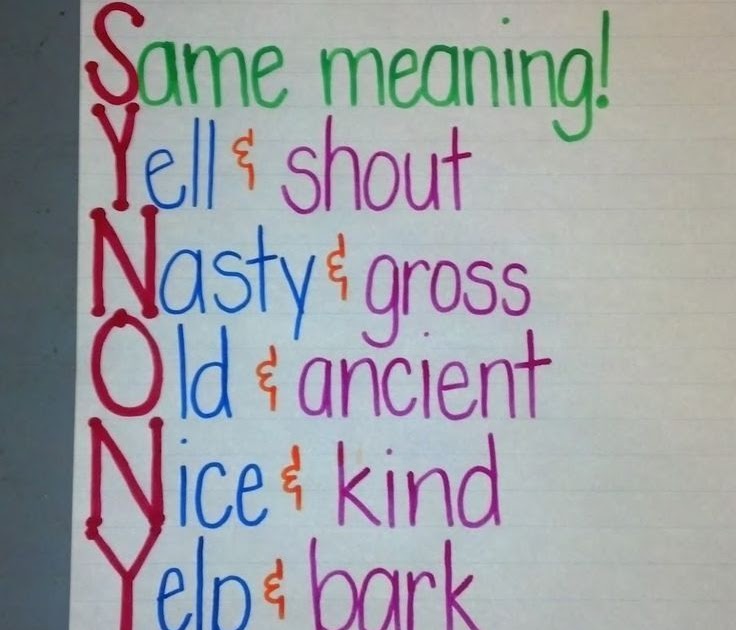 Same meaning!
Yell & shout
Nasty & gross
Old & ancient
Nice & kind
Yelp & bark